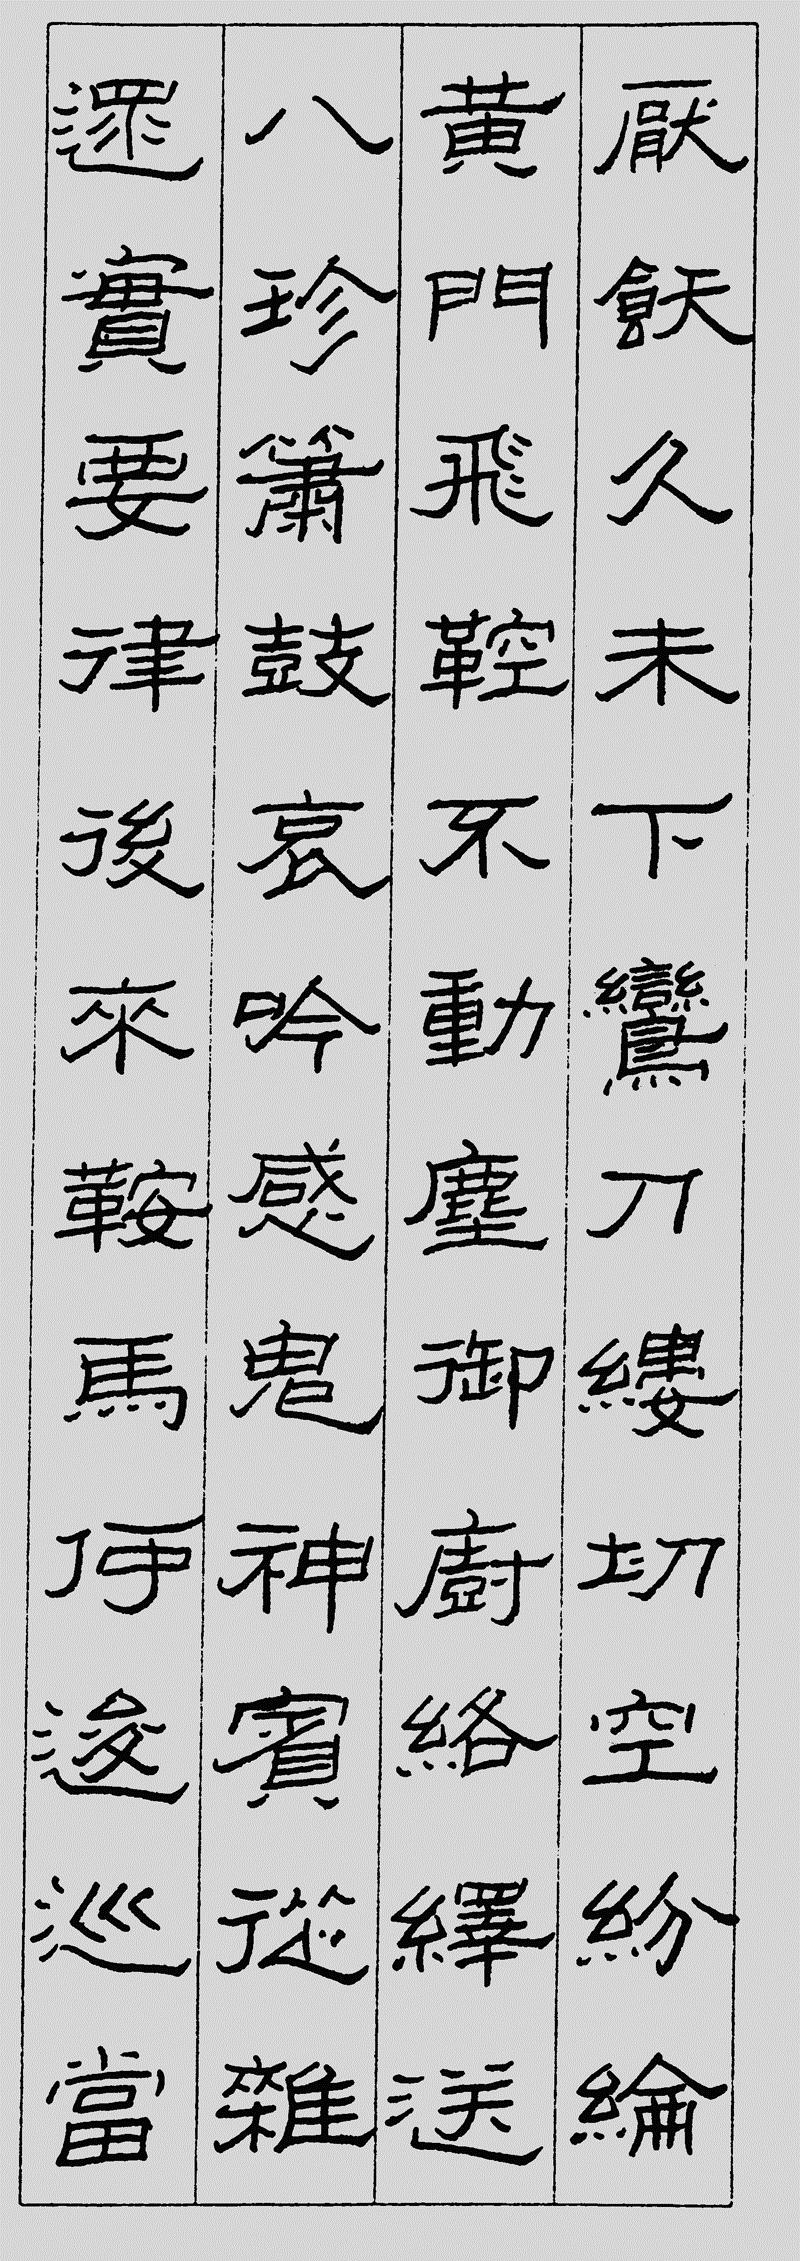 厭飫久未下鸞刀縷切空紛綸
黃門飛鞚不動塵御廚絡繹送
八珍簫鼓哀吟感鬼神賓從雜
遝實要津後來鞍馬何逡巡當